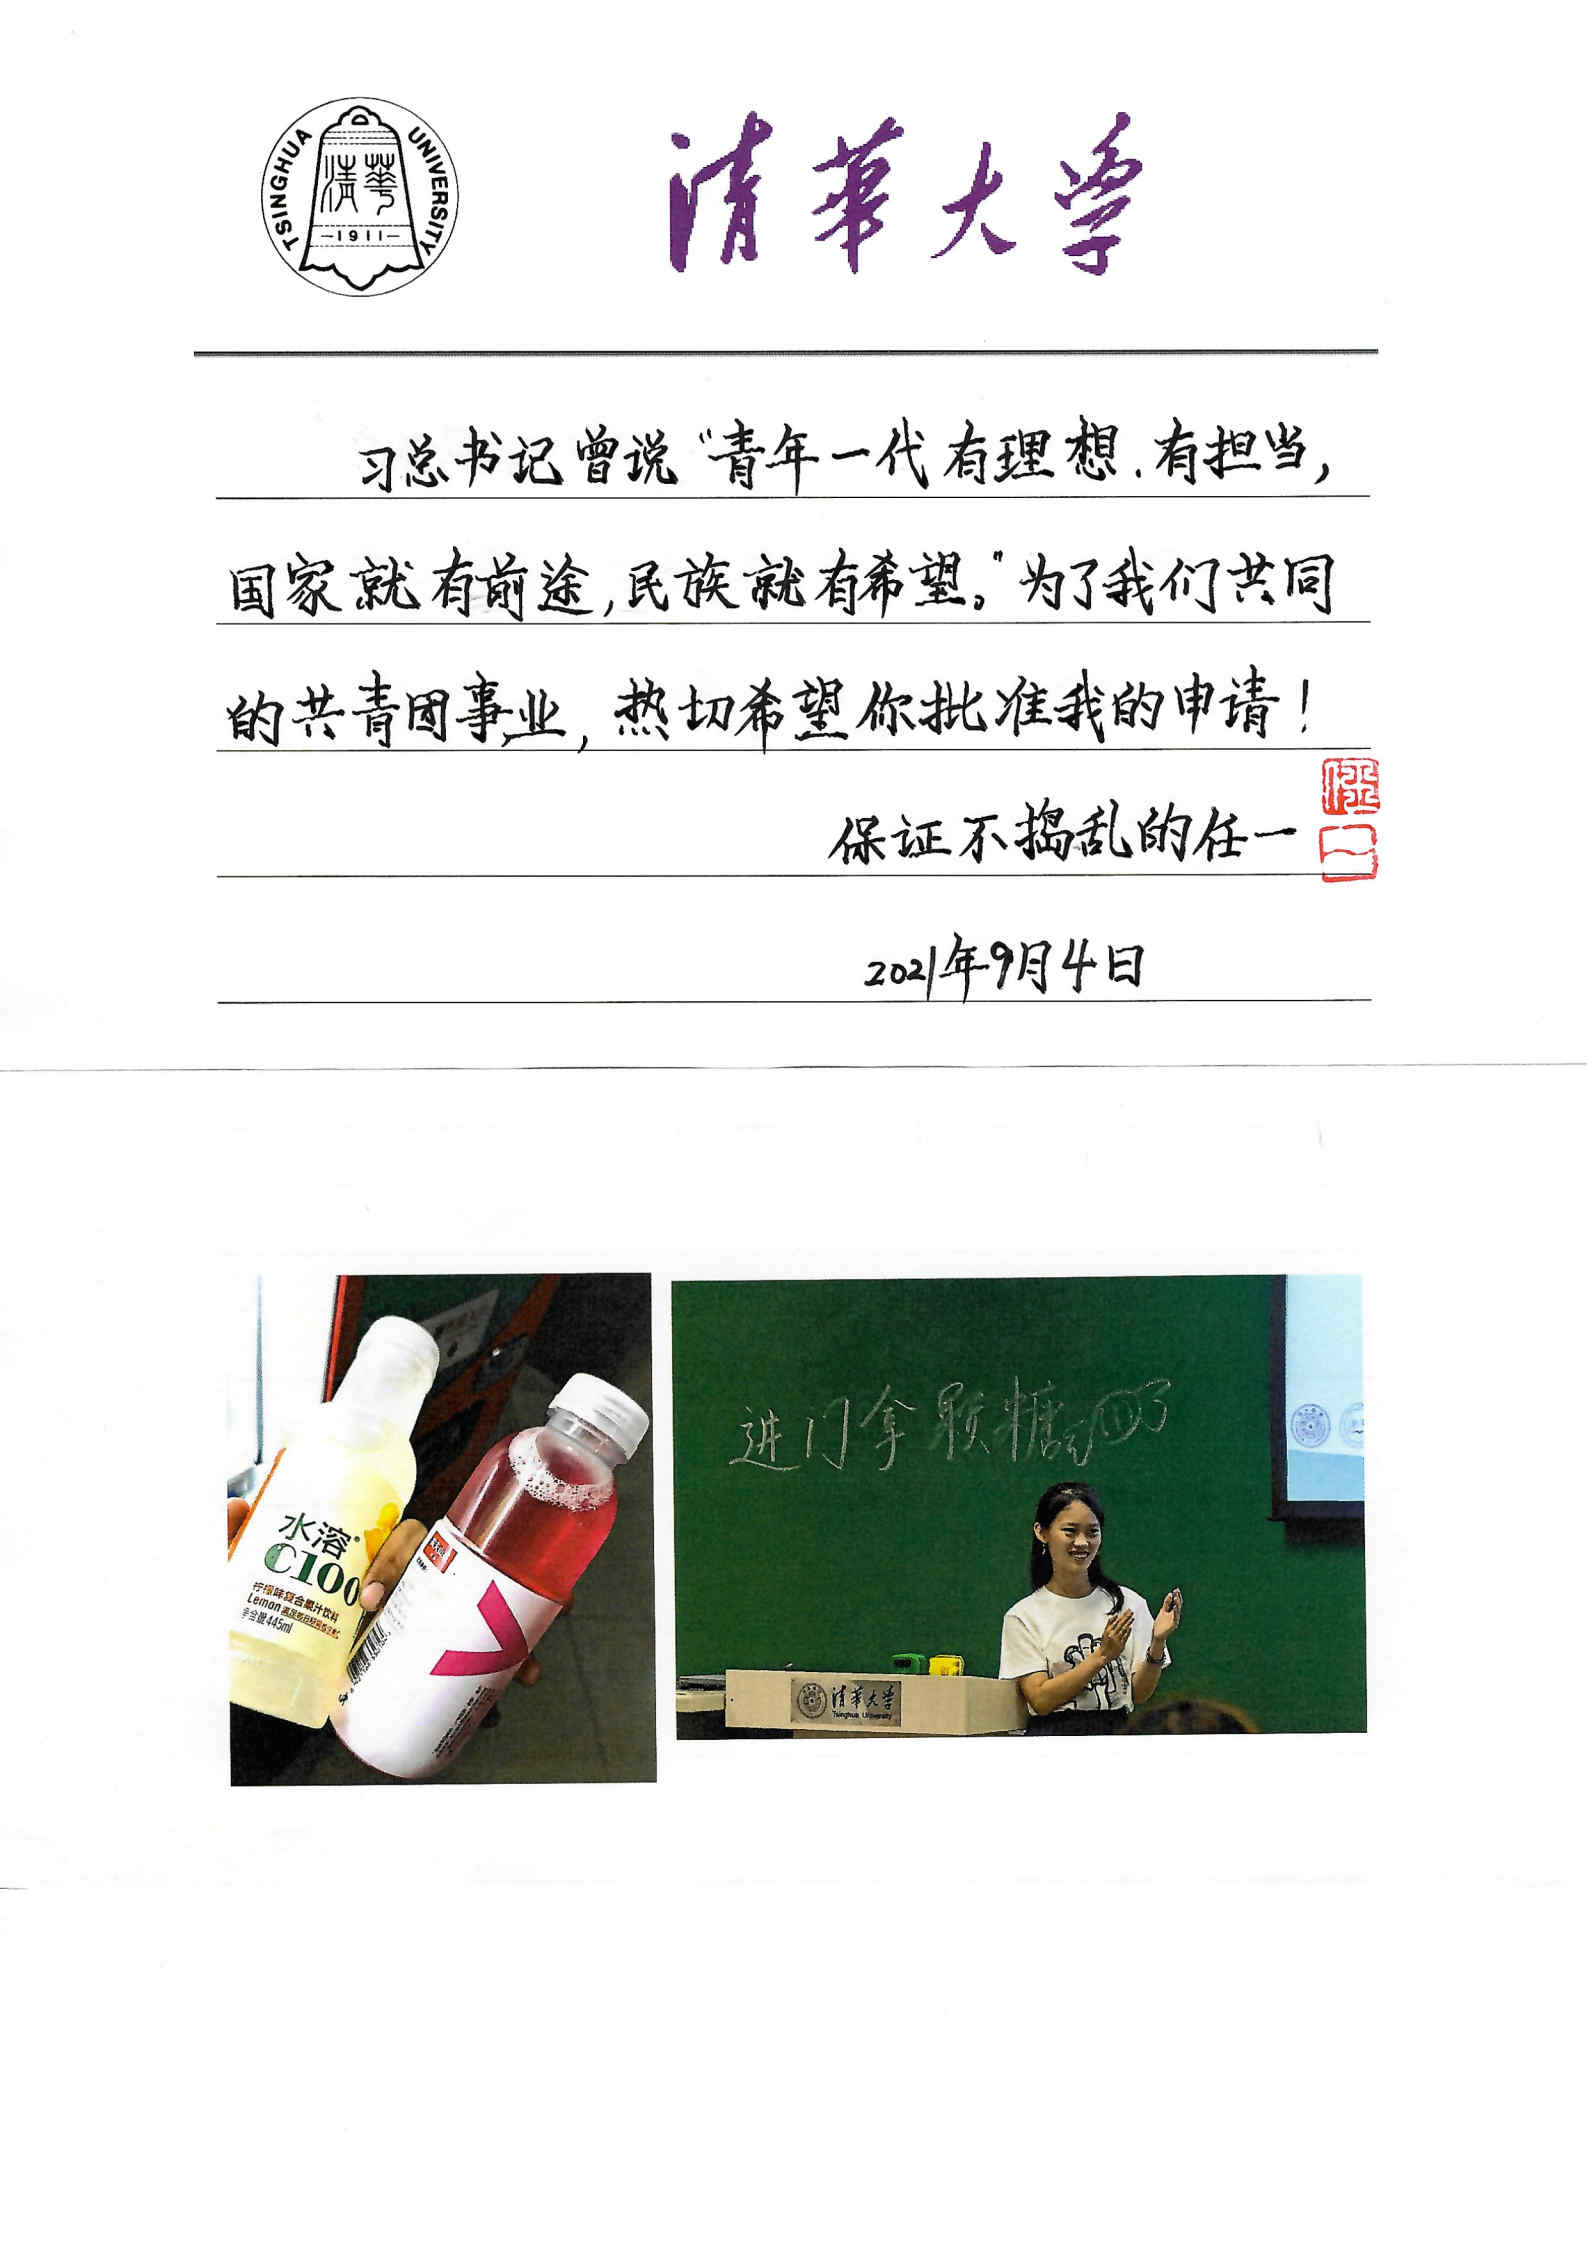 TSINGHUA UNIVERSITY
清華
-1911-
清華大学
习总书记曾说“青年一代有理想、有担当,
国家就有前途,民族就有希望。”为了我们共同
的共青团事业,热切希望你批准我的申请!
保证不捣乱的任一
任一
2021年9月4日
水溶
C100
柠檬味复合果汁饮料
Lemon
净含量445ml
进门拿颗糖
清華大学
Tsinghua University